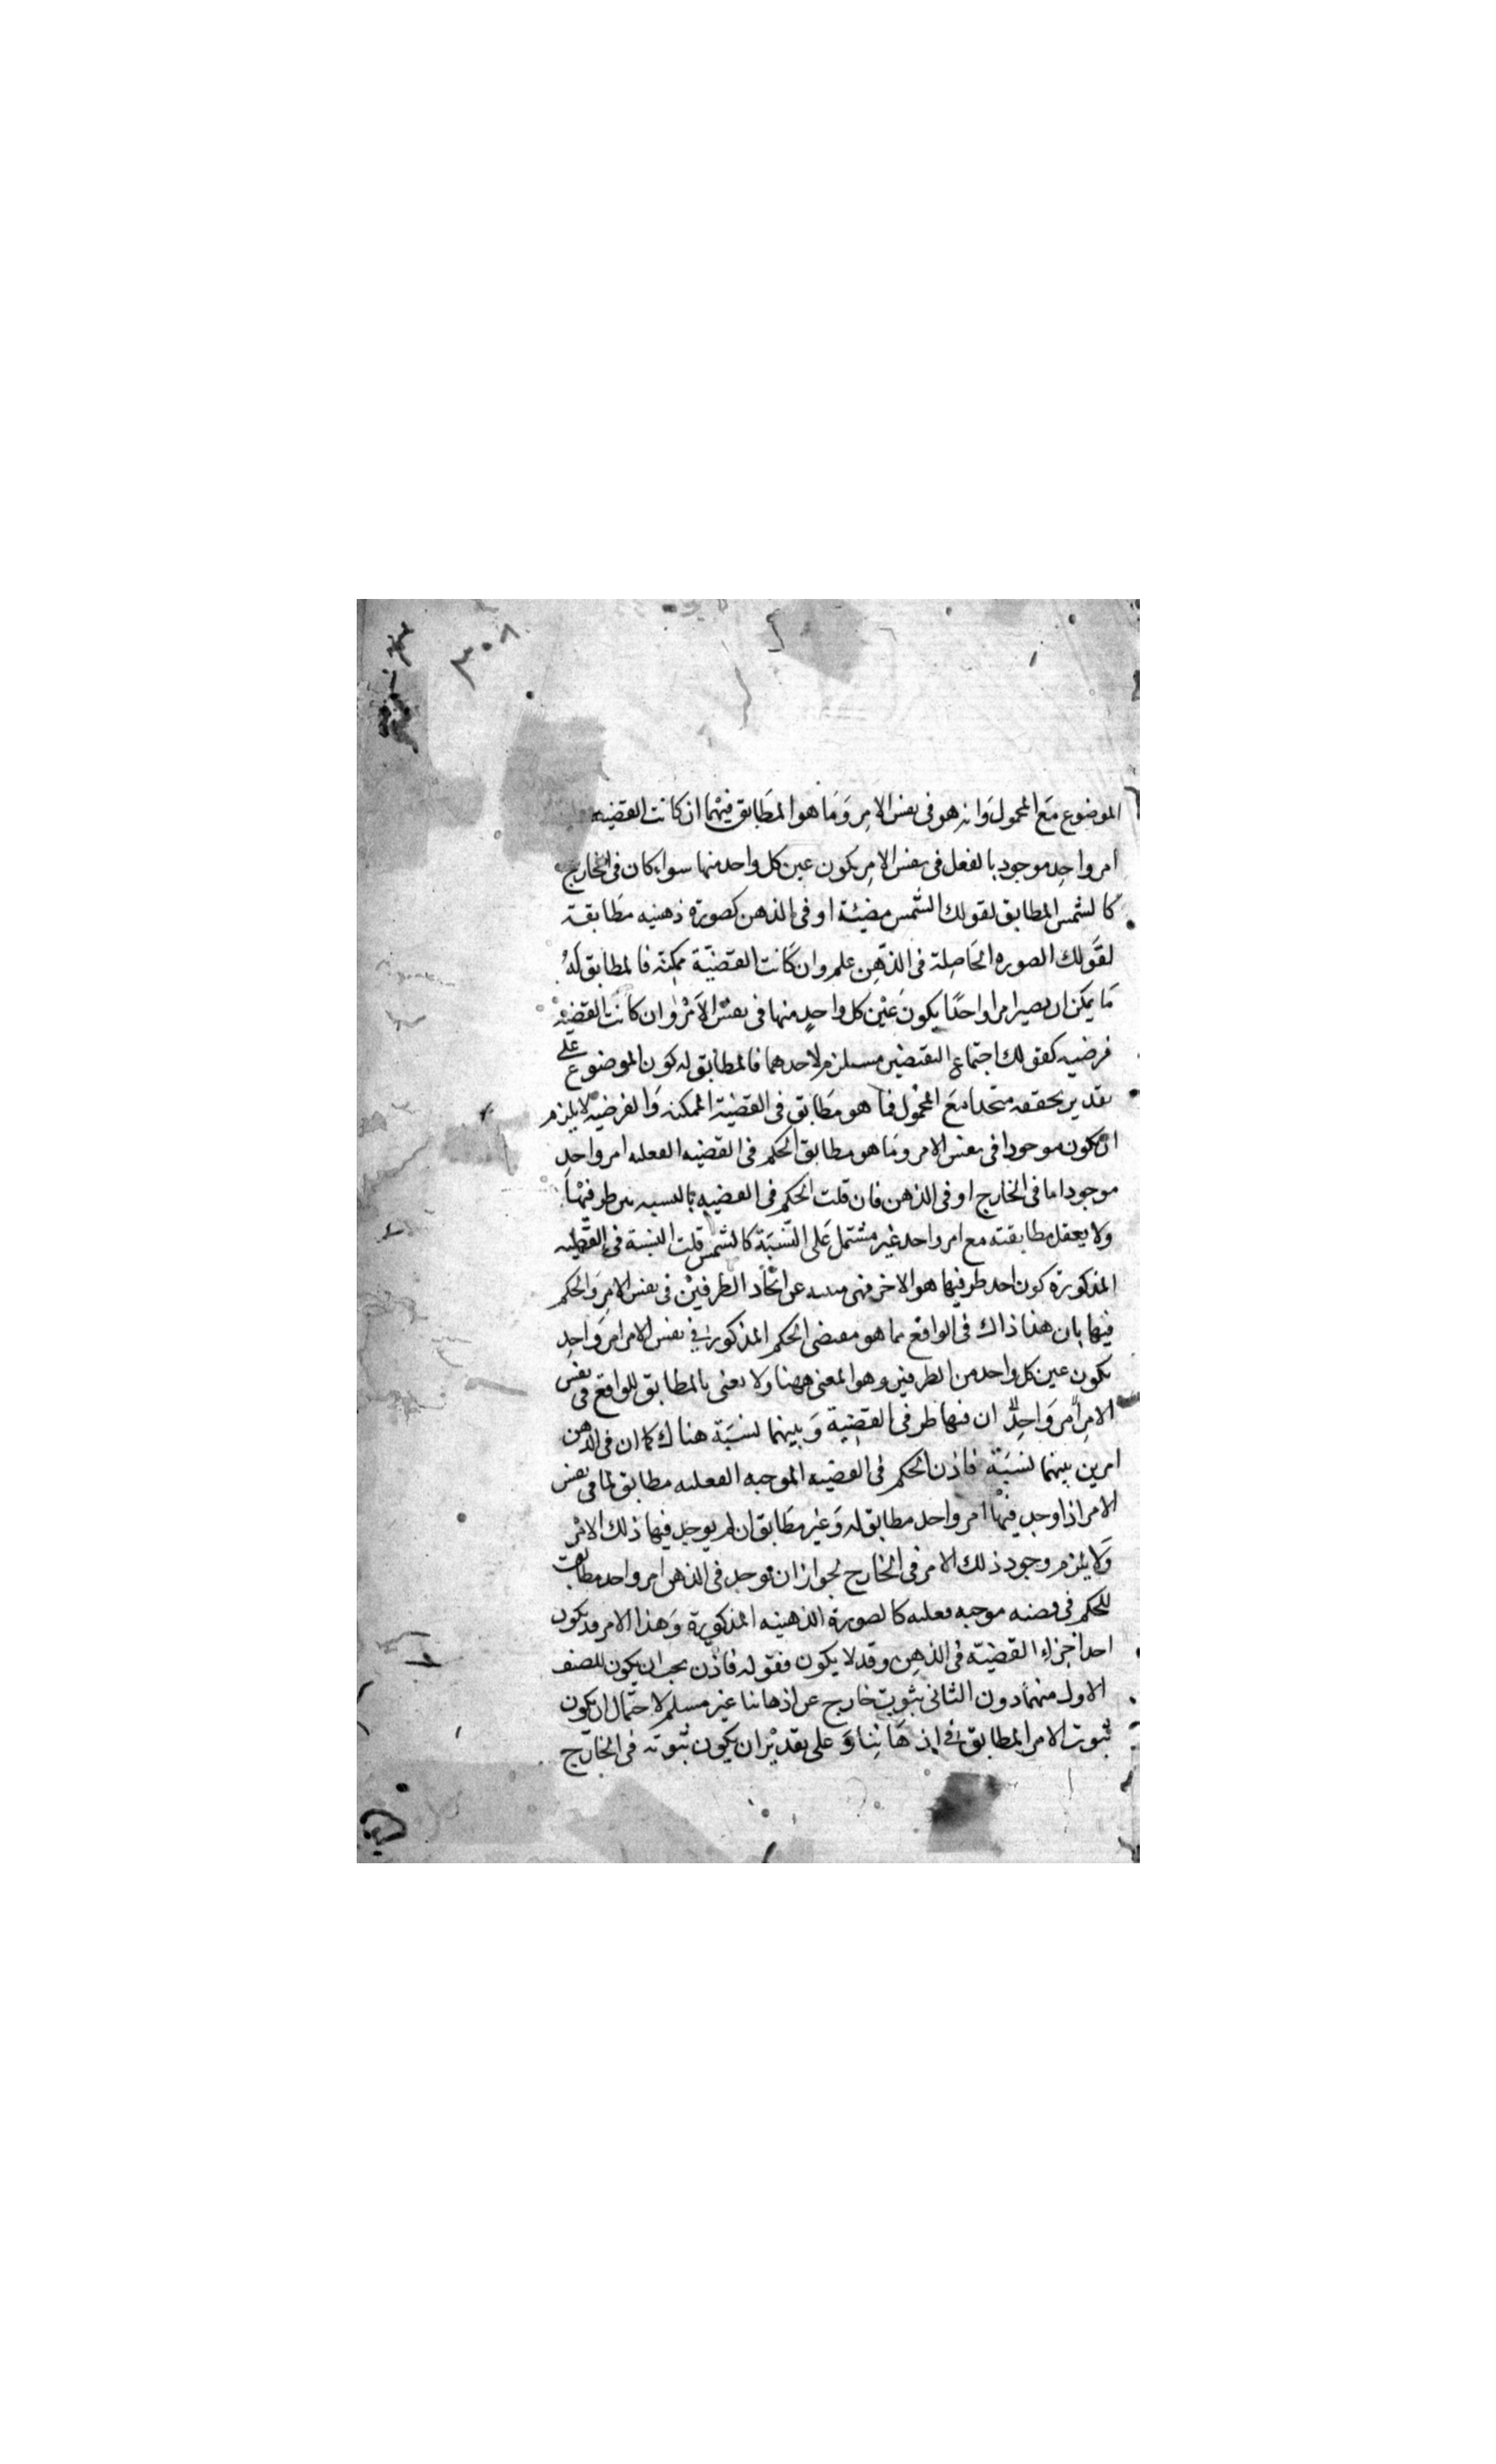 ٣٠٨
الموضوع مع المحمول وانه هو فى نفس الامر وما هو المطابق فيهما ان كانت القضيه
امر واحد موجود بالفعل فى نفس الامر يكون عين كل واحد منها سواء كان فى الخارج
كالشمس المطابق لقولك الشمس مضيئة او فى الذهن كصورة ذهنيه مطابقة
لقولك الصوره الحاصلة فى الذهن علم وان كانت القضية ممكنة فالمطابق له
ما يمكن ان يصير امرا واحدا يكون عين كل واحد منها فى نفس الامر وان كانت القضية
فرضيه كقولك اجتماع النقيضين مستلزم لاحدهما فالمطابق له كون الموضوع على
تقدير تحققه متحدا مع المحمول فما هو مطابق فى القضية الممكنه والفرضيه لا يلزم
ان يكون موجودا فى نفس الامر وما هو مطابق الحكم فى القضيه الفعليه امر واحد
موجود اما فى الخارج او فى الذهن فان قلت الحكم فى القضيه بالنسبه بين طرفيها
ولا يعقل مطابقته مع امر واحد غير مشتمل على النسبة كالشمس قلت النسبة فى القضيه
المذكورة كون احد طرفيها هو الاخر فهى عن اتحاد الطرفين فى نفس الامر والحكم
فيها بان هذا ذاك فى الواقع مما هو مقتضى الحكم المذكور فى نفس الامر امر واحد
يكون عين كل واحد من الطرفين وهو المعنى ههنا ولا نعنى بالمطابق للواقع فى نفس
الامر امر واحد ان فيها طرفى القضية وبينهما نسبة هناك كما ان فى الذهن
امرين بينهما نسبة فاذن الحكم فى القضيه الموجبه الفعليه مطابق لما فى نفس
الامر اذا وجد فيها امر واحد مطابق له وغير مطابق ان لم يوجد فيها ذلك الامر
ولا يلزم وجود ذلك الامر فى الخارج لجواز ان يوجد فى الذهن امر واحد مطابق
للحكم فى قضيه موجبه فعليه كالصورة الذهنيه المذكورة وهذا الامر قد يكون
احد اجزاء القضية فى الذهن وقد لا يكون فقوله فاذن يجب ان يكون للصنف
الاول منهما دون الثانى ثبوت خارج عن اذهاننا غير مسلم لاحتمال ان يكون
ثبوت الامر المطابق فى اذهاننا وعلى تقدير ان يكون ثبوته فى الخارج